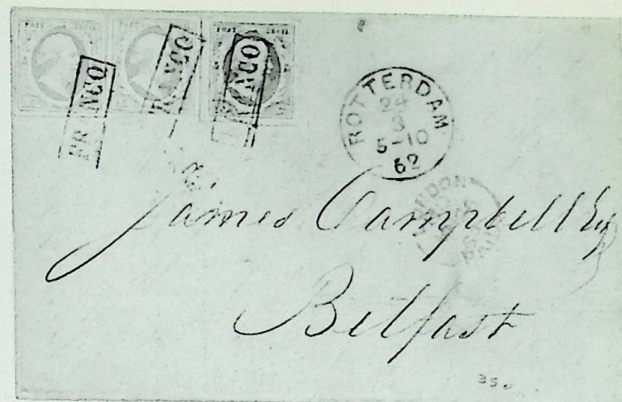 FRANCO
FRANCO
FRANCO
ROTTERDAM
24
3
5-10
62
James Campbell Esq
Belfast